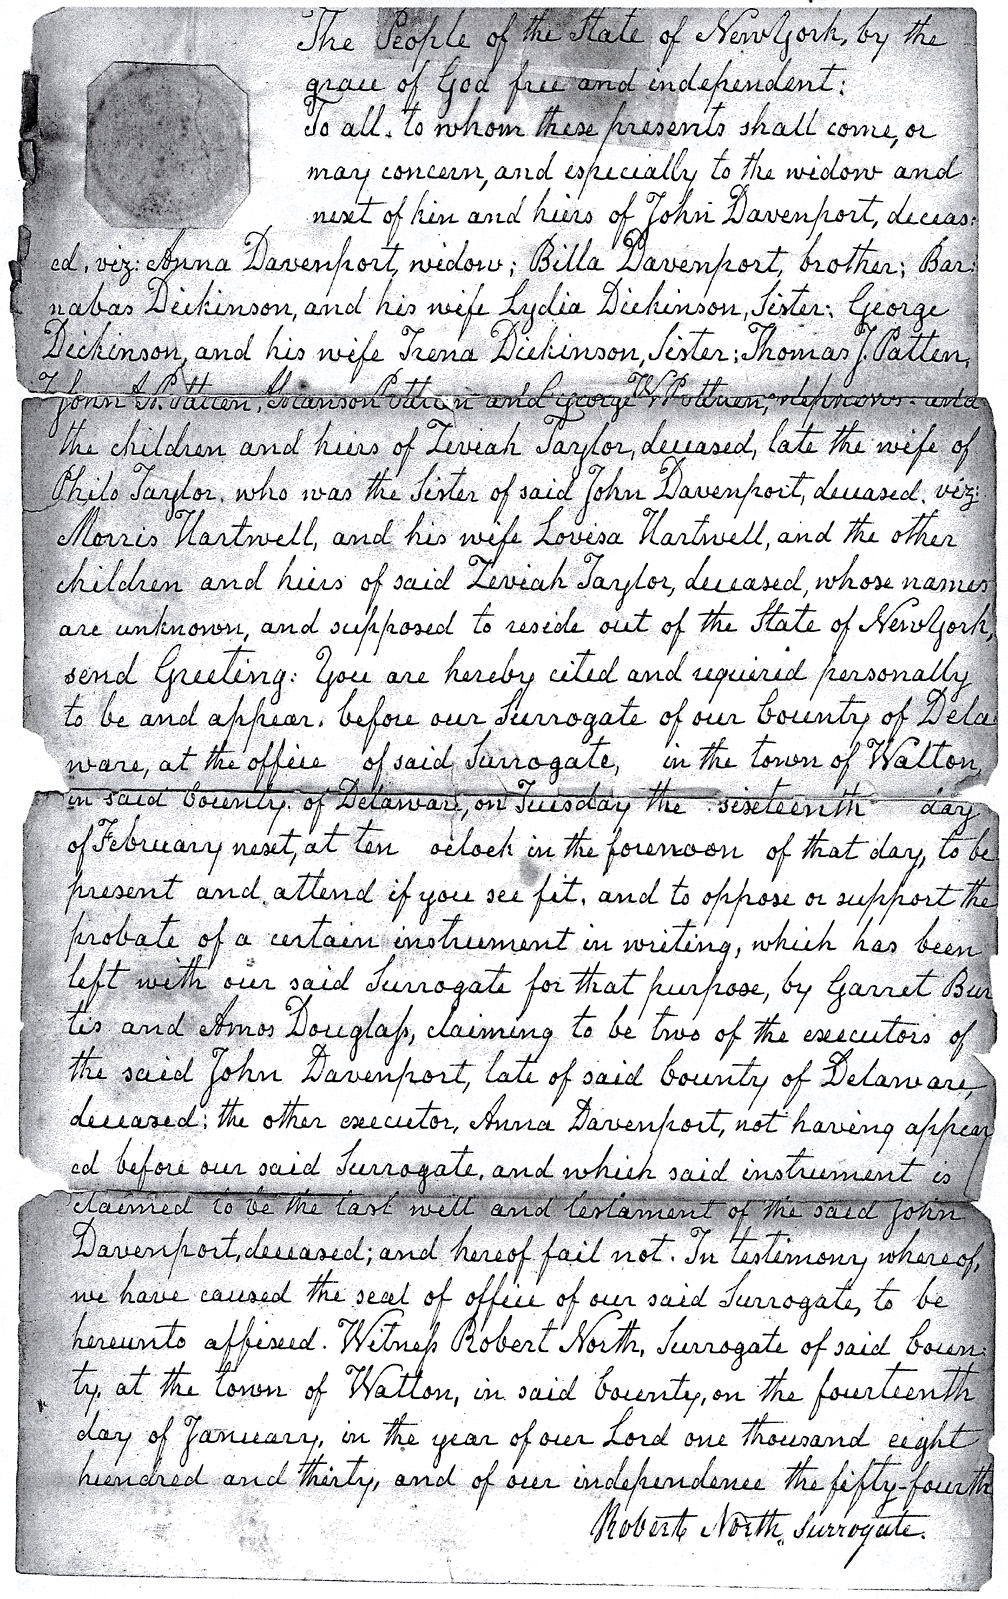 The People of the State of New York, by the
grace of God free and independent:
To all. to whom these presents shall come, or
may concern, and especially to the widow and
next of kin and heirs of John Davenport, deceas:
ed, viz: Anna Davenport, widow; Billa Davenport, brother; Bar:
nabas Dickinson, and his wife Lydia Dickinson, Sister; George
Dickinson, and his wife Irena Dickinson, Sister; Thomas J. Patten,
John A. Patten, Patten and George W. Patten, nephews. and
the children and heirs of Zeviah Taylor, deceased, late the wife of
Philo Taylor, who was the Sister of said John Davenport, deceased. viz:
Morris Hartwell, and his wife Lovisa Hartwell, and the other
children and heirs of said Zeviah Taylor, deceased, whose names
are unknown, and supposed to reside out of the State of New York,
send Greeting: You are hereby cited and required personally
to be and appear. before our Surrogate of our County of Dela
ware, at the office of said Surrogate, in the town of Walton,
in said County. of Delaware, on Tuesday the sixteenth day
of February next, at ten oclock in the forenoon of that day, to be
present and attend if you see fit, and to oppose or support the
probate of a certain instrument in writing, which has been
left with our said Surrogate for that purpose, by Garret Bur
tis and Amos Douglass, claiming to be two of the executors of
the said John Davenport, late of said County of Delaware,
deceased; the other executor, Anna Davenport, not having appear
ed before our said Surrogate, and which said instrument is
claimed to be the last will and testament of the said John
Davenport, deceased; and hereof fail not. In testimony whereof,
we have caused the seal of office of our said Surrogate, to be
hereunto affixed. Witness Robert North, Surrogate of said Coun:
ty, at the town of Walton, in said County, on the fourteenth
day of January, in the year of our Lord one thousand eight
hundred and thirty, and of our independence the fifty-fourth
Robert North, Surrogate.